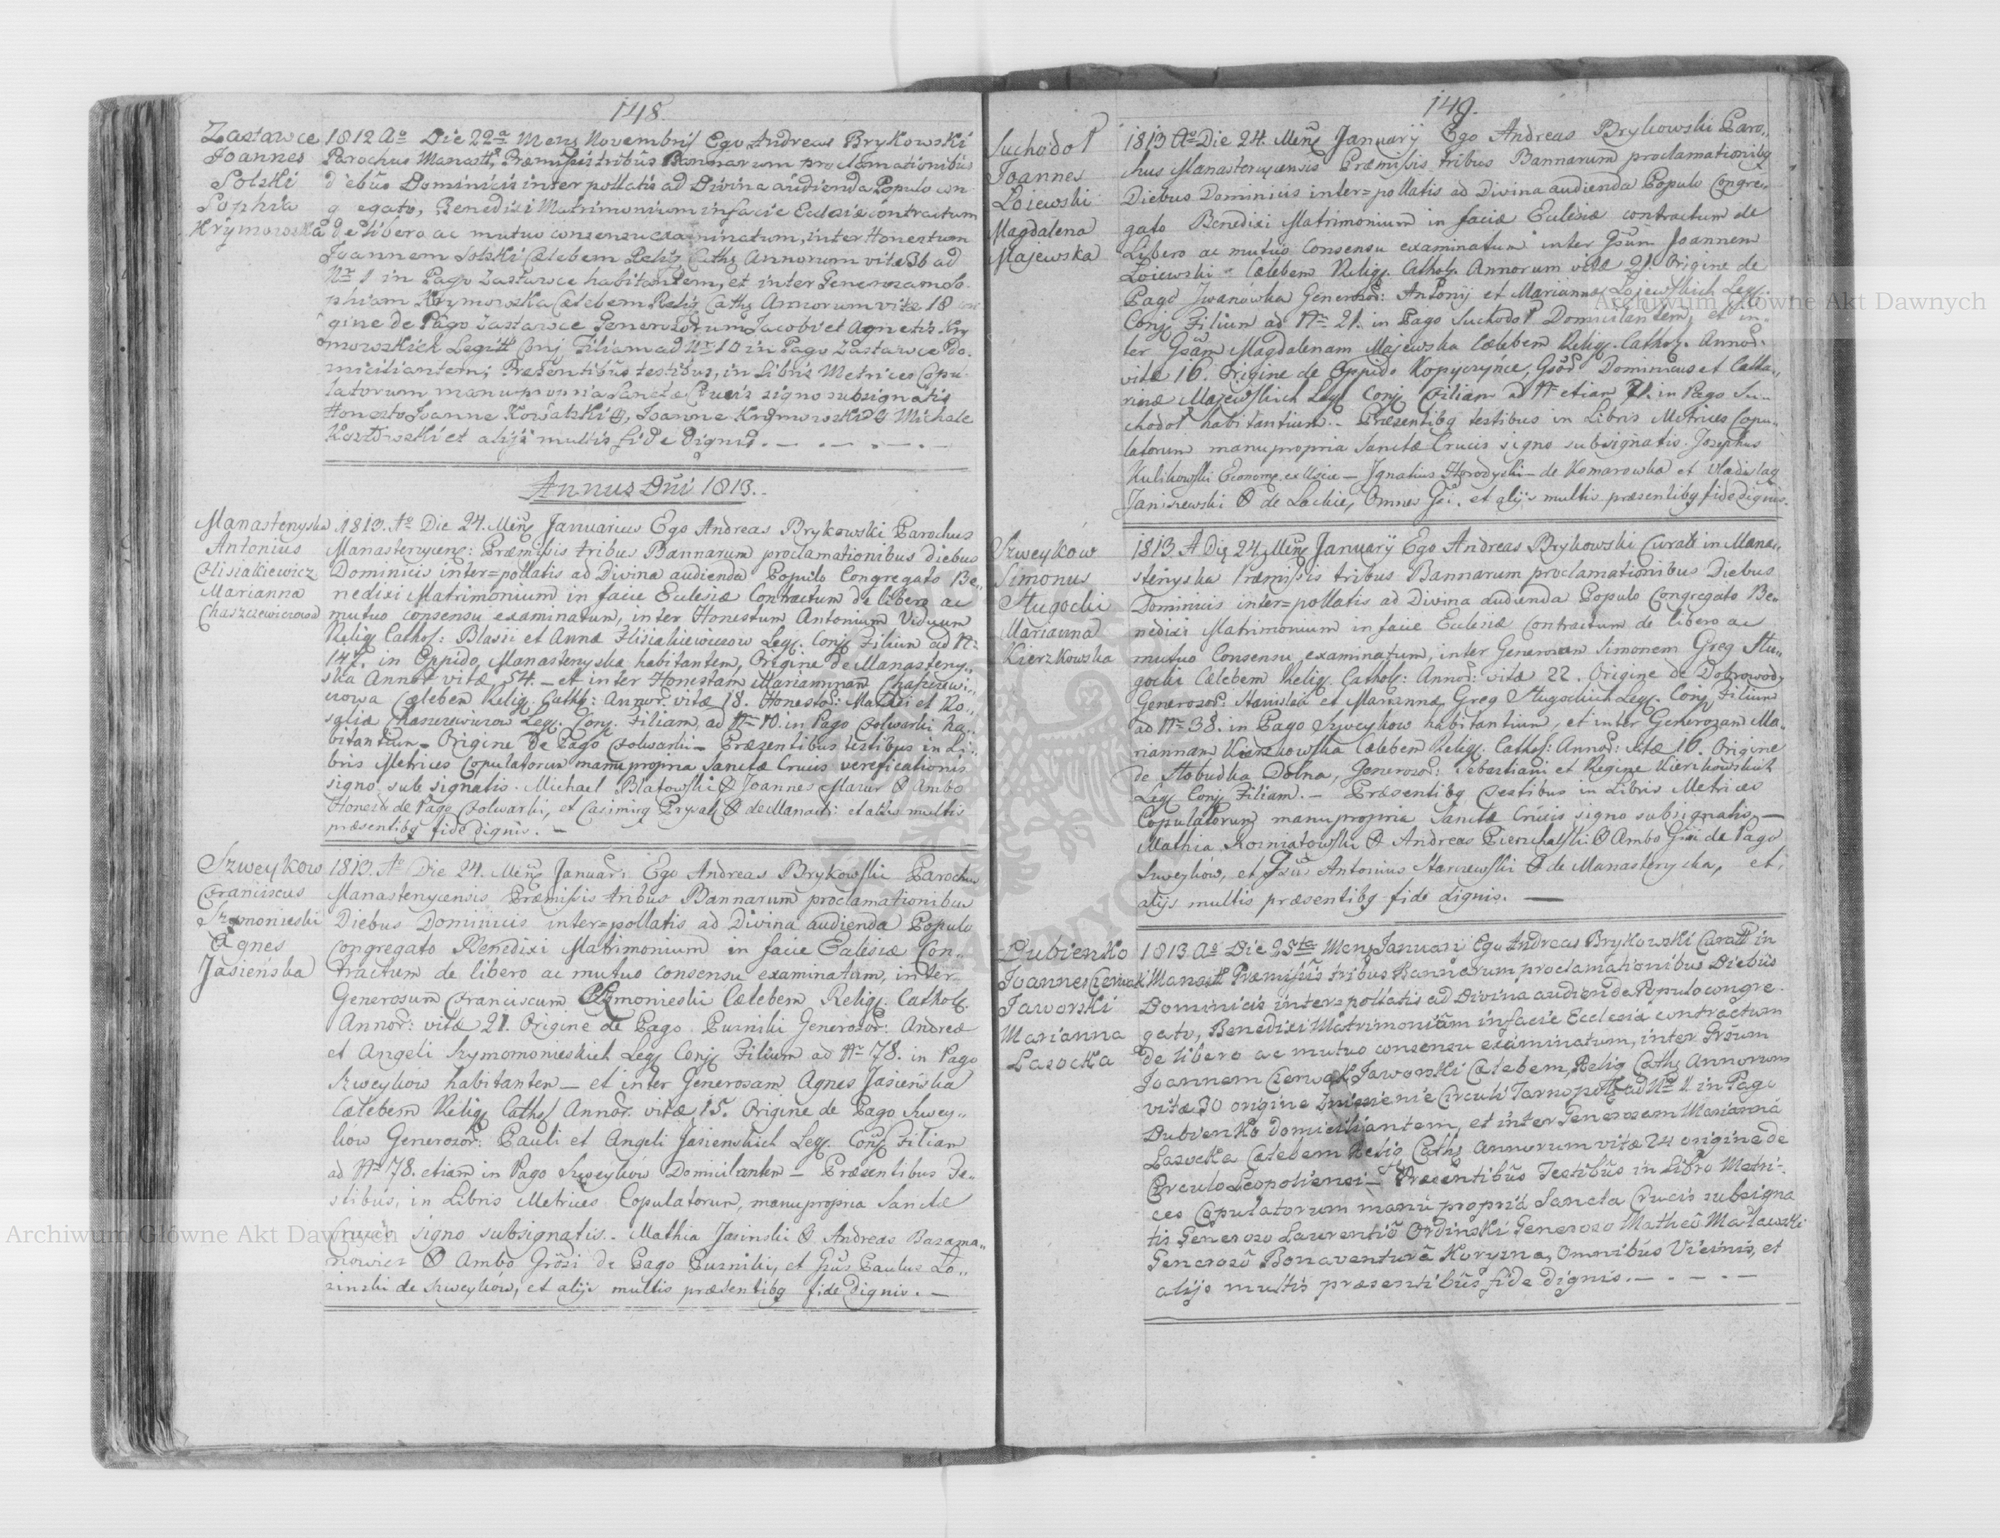 148.
Zastawce
Joannes
Solski
Sophia
Krymowska
1812 Ao Die 22a Mens Novembris Ego Andreas Brykowski
Parochus Manastt. Præmissis tribus Bannarum proclamationibus
diebus Dominicis inter pollatis ad Divina audienda Populo con
g egato, Benedixi Matrimonium in facie Eclesiæ contractum
de libero ac mutuo consensu examinatum, inter Honestum
Joannem Solski Cælebem Relig Cathq Annorum vitæ 36 ad
Nr 1 in Pago Zastawce habitantem, et inter Generosam So
phiam Krymowska Cælebem Relig Cathq Annorum vitæ 18 ori
gine de Pago Zastawce Generosorum Jacobi et Agnetis Kry
mowskich Legitt Conj Filiam ad Nr 10 in Pago Zastawce Do.
miciliantem; Præsentibus testibus, in Libris Metrices Copu
latorum manu propria Sanctæ Crucis signo subsignatis
Honesto Joanne Kowalski, Joanne Krymowski Michale
et alijs multis fide dignis. — — — —
Annus Dni 1813.
Manasterzyska
Antonius
Flisiakiewicz
Marianna
Chaszczewiczowa
1813. Ao Die 24. Mens Januarius Ego Andreas Brykowski Parochus
Manasterzycens: Præmissis tribus Bannarum proclamationibus diebus
Dominicis inter=pollatis ad Divina audienda Populo Congregato Be,,
nedixi Matrimonium in facie Eclesiæ Contractum de libero ac
mutuo consensu examinatum, inter Honestum Antonium Viduum
Relig Cathol: Blasii et Annæ Flisiakiewiczow Leg. Conj Filium ad Nr
147. in Oppido Manasterzyska habitantem, Origine de Manasterzy,,
ska Annor vitæ 54. — et inter Honestam Mariannam Chaszczewi,,
czowa Cæleben Relig. Cathol: Annor. vitæ 18. Honestor: Mathei et Ro,,
saliæ Chaszczewiczow Leg. Conj. Filiam, ad Nr 10. in Pago Folwarki ha,,
bitantium — Origine de Pago Folwarki — Præsentibus testibus in Li,,
bris Metrices Copulatorum manu propria Sanctæ Crucis verificationis
signo sub signatis. Michael Blatowski Joannes Mazur Ambo
Honest de Pago Folwarki, et Casimirq de Manast: et aliis multis
præsentibq fide dignis. —
Szweykow
Franciscus
Szymonieski
Agnes
Jasieńska
1813. Ao Die 24. Mens Januar: Ego Andreas Brykowski Parochus
Manasterzycensis Præmissis tribus Bannarum proclamationibus
Diebus Dominicis inter=pollatis ad Divina audienda Populo
Congregato Benedixi Matrimonium in facie Eclesiæ Con,,
tractum de libero ac mutuo consensu examinatum, inter
Generosum Franciscum Szymonieski Cælebem Relig. Cathol.
Annor: vitæ 21. Origine de Pago Puzniki Generosor: Andreæ
et Angeli Szymomonieskich Leg Conj Filium ad Nr 78. in Pago
Szweykow habitantem — et inter Generosam Agnes Jasieńska
Cælebem Relig Cathol Annor. vitæ 15. Origine de Pago Szwey,,
ków Generosor: Pauli et Angeli Jasienskich Leg. Conj Filiam
ad Nr 78. etiam in Pago Szweyków Domicilantem — Præsentibus Te,,
stibus, in Libris Metrices Copulatorum, manu propria Sanctæ
Crucis signo subsignatis. Mathia Jasinski Andreas Barama,,
nowicz Ambo de Pago Puzniki, et Paulus Lo,,
zinski de Szweyków, et alijs multis præsentibq fide dignis. —
149.
Suchodoł
Joannes
Łoiewski
Magdalena
Majewska
1813 Ao Die 24. Mens Januarij Ego Andreas Brykowski Paro,,
chus Manasterzycensis Præmissis tribus Bannarum proclamationibq
Diebus Dominicis inter=pollatis ad Divina audienda Populo Congre,,
gato Benedixi Matrimonium in faciæ Eclesiæ contractum de
Libero ac mutuo Consensu examinatum inter Gsum Joannem
Łoiewski Cælebem Relig. Cathol. Annorum vitæ 21. Origine de
Pago Jwanówka Generosor: Antonij et Mariannæ Łojewskich Leg.
Conj Filium ad Nr 21. in Pago Suchodoł Domicilantem, et in-
ter Gsam Magdalenam Majewska Cælebem Relig. Cathol. Annor:
vitæ 16. Origine de Oppido Kopyczyńce, Gsor Dominicus et Catha,,
rinæ Majewskich Leg Conj Filiam ad Nr etiam 21. in Pago Su,,
chodoł habitantium. Præsentibq testibus in Libris Metrices Copu,,
latorum manu propria Sanctæ Crucis signo subsignatis. Josephus
Kulikowski — Jgnatius Horodyski — de Komarowka et Vladislaq
Janiszewski de Lackie, Omnes Gsi. et alijs multis præsentibq fide dignis.
Szweykow
Simonus
Sługocki
Marianna
Kierzkowska
1813 A Die 24. Mens Januarij Ego Andreas Brykowski Curatt in Mana,,
sterzyska Præmissis tribus Bannarum proclamationibus Diebus
Dominicis inter=pollatis ad Divina audienda Populo Congregato Be,,
nedixi Matrimonium in facie Eclesiæ contractum de libero ac
mutuo Consensu examinatum, inter Generosum Simonem Greg Słu,,
gocki Cælebem Relig. Cathol: Annor: vitæ 22. Origine de Dobrowody
Generosor: Stanislai et Mariannæ Greg Sługockich Leg. Conj Filium
ad Nr 38. in Pago Szweykow habitantium, et inter Generosam Ma,,
riannam Kierzkowska Cælebem Relig. Cathol: Annor: vitæ 16. Origine
de Słobudka Dolna, Generosor: Sebastiani et Regine Kierzkowskich
Leg Conj Filiam. — Præsentibq Testibus in Libris Metrices
Copulatorum manu propria Sanctæ Crucis signo subsignatis —
Mathia Rozniatowski Andreas Ambo Gsi de Pago
Szweyków, et Antonius de Manasterzyska, et,
alijs multis præsentibq fide dignis. —
Dubienko
Joannes Czerwak
Jaworski
Marianna
Lasocka
1813 Ao Die 25ta Mens Januari Ego Andreas Brykowski Curatt in
Manastt Præmissis tribus Bannarum proclamationibus Diebus
Dominicis inter pollatis ad Divina audienda Populo congre.
gato, Benedixi Matrimonium in facie Ecclesia contractum
de libero ac mutuo consensu examinatum, inter Grosum
Joannem Czerwak Jaworski Cælebem, Relig Cathq Annorum
vitæ 30 origine Circuli Tarnopoll ad Nr 1 in Pago
Dubienko domiciliantem, et inter Generosam Marianna
Lasocka Cælebem Relig Cathq Annorum vitæ 24 origine de
Circulo Leopoliensi — Præsentibus Testibus in Libro Metri-
ces Copulatorum manu propria Sancta Crucis subsigna
tis Generoso Laurentio Ordinski Generoso Matheo Maławski
Generoso Bonaventura Koryzna, Omnibus Vicinis, et
alijs multis præsentibus fide dignis. — . — . —
Archiwum Główne Akt Dawnych
Archiwum Główne Akt Dawnych